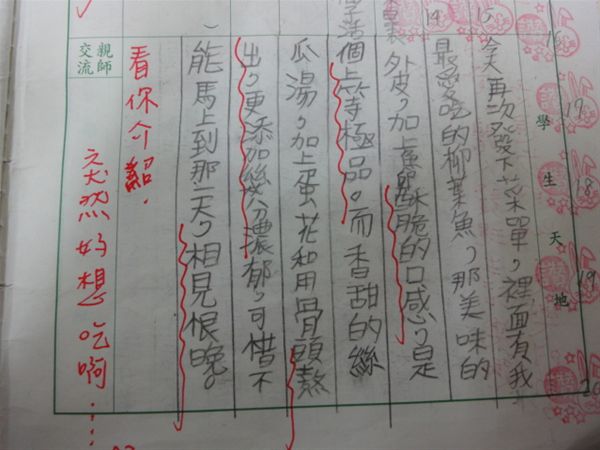 學生天地
14
15
16
17
18
19
今天再次發下菜單，裡面有我
最愛吃的柳葉魚，那美味的
外皮，加上魚卵酥脆的口感，是
個上等極品。而香甜的絲
瓜湯，加上蛋花和用骨頭熬
出，更添加幾分濃郁，可惜不
能馬上到那一天，相見恨晚。
親師交流
看你介紹，
突然好想吃啊……